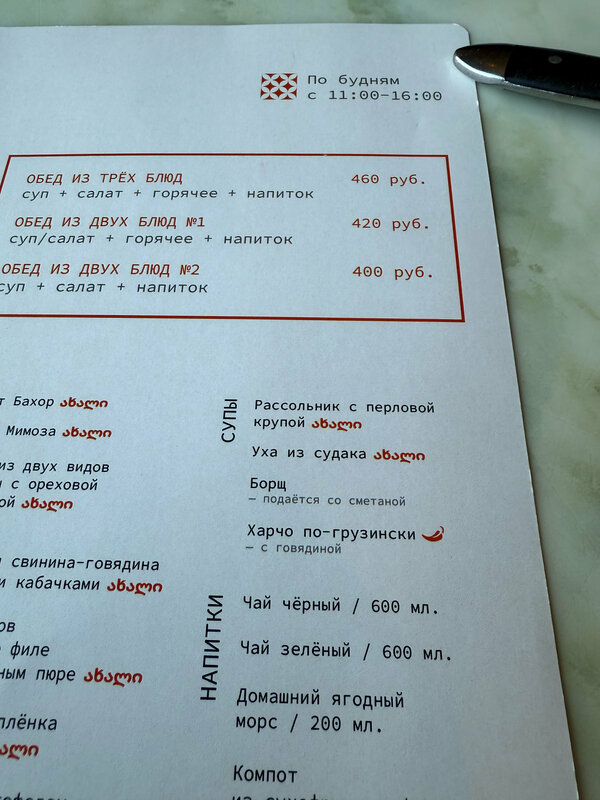 По будням
с 11:00–16:00
ОБЕД ИЗ ТРЁХ БЛЮД 460 руб.
суп + салат + горячее + напиток
ОБЕД ИЗ ДВУХ БЛЮД №1 420 руб.
суп/салат + горячее + напиток
ОБЕД ИЗ ДВУХ БЛЮД №2 400 руб.
суп + салат + напиток
Бахор ახალი
Мимоза ახალი
из двух видов
с ореховой
ახალი
свинина-говядина
и кабачками ახალი
филе
пюре ახალი
СУПЫ
Рассольник с перловой
крупой ახალი
Уха из судака ახალი
Борщ
– подаётся со сметаной
Харчо по-грузински
– с говядиной
НАПИТКИ
Чай чёрный / 600 мл.
Чай зелёный / 600 мл.
Домашний ягодный
морс / 200 мл.
Компот